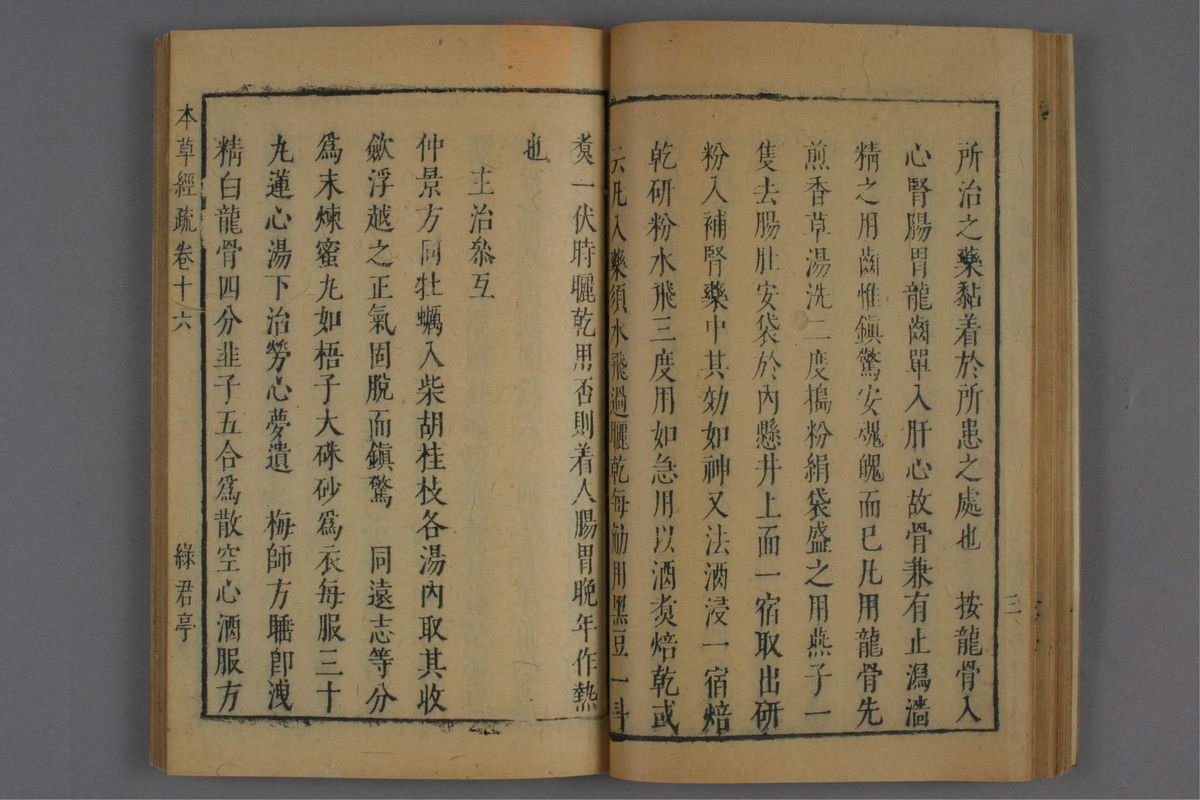 所治之藥黏着於所患之處也　按龍骨入
心腎腸胃龍齒單入肝心故骨兼有止瀉濇
精之用齒惟鎭驚安魂魄而已凡用龍骨先
煎香草湯洗二度搗粉絹袋盛之用燕子一
隻去腸肚安袋於內懸井上面一宿取出研
粉入補腎藥中其効如神又法酒浸一宿焙
乾研粉水飛三度用如急用以酒煑焙乾或
云凡入藥須水飛過曬乾每觔用黑豆一斗
煑一伏時曬乾用否則着人腸胃晚年作熱
也
主治叅互
仲景方同牡蠣入柴胡桂枝各湯內取其收
歛浮越之正氣固脫而鎭驚　同遠志等分
爲末煉蜜丸如梧子大硃砂爲衣每服三十
九蓮心湯下治勞心夢遺　梅師方睡卽洩
精白龍骨四分韭子五合爲散空心酒服方
本草經疏卷十六　綠君亭